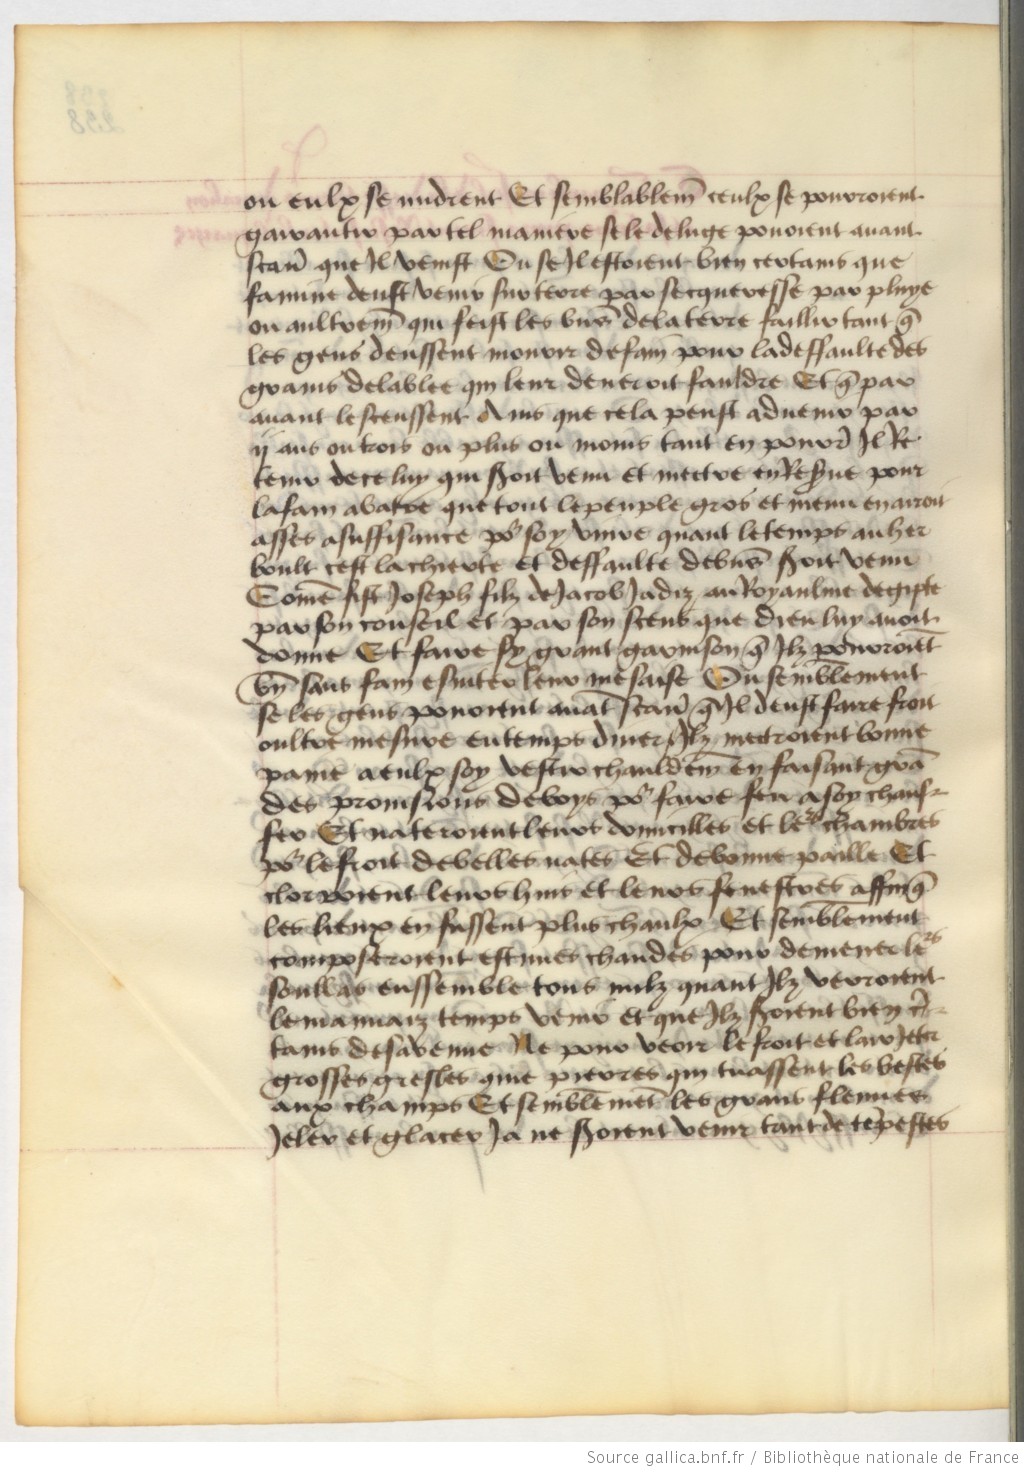 ou eulx se midrent Et semblablem̄ ceulx se pouroient
garantir par tel maniere se le deluge pouoient auant
scau᷑ que Il venist Ou se Il estoient bien certains que
famine deust venir sur terre par secqueresse par pluye
ou aultrem̄ qui feist les biēs de la terre faillir tant q̄
les gens deussent mourir de fain pour la deffaulte des
grains de la blee qui leur deueroit fauldre Et q̄ par
auant le sceussent Ains que cela peust aduenir par
ij ans ou trois ou plus ou moins tant en pouor̄ Il Re
tenir de celuy qui seroit venu et mectre en Reserue pour
la fain abatre que tout le peuple gros et menu en auroit
asses a suffisance po᷑ soy viure quant le temps au her
boult cest la chierte et deffaulte de biēs seroit venu
Com̄e fist Joseph filz de Jacob Jadiz au Royaulme degipte
par son conseil et par son scens que dieu luy auoit
donne Et faire sy grant garnison q̄ Ilz pouroiēt
bn̄ sans fain esuiter leur mesaise Ou semblement
se les gens pouoient auāt scau᷑ q̄ Il deust faire froit
oultre mesure en temps diuer Ilz mectroient bonne
paine a eulx soy vestir chauldem̄ en faisant grā
des prouisions de boys po᷑ faire feu a soy chauf-
fer Et nateroient leurs domicilles et le᷑s chambres
po᷑ le froit de belles nates Et de bonne paille Et
clorroient leurs huis et leurs fenestres affin q̄
les lieux en fussent plus chaulx Et semblement
composeroient estuues chaudes pour demener le᷑s
soullas enssemble tous nulz quant Ilz verroient
le mauuaiz temps venir et que Ilz seroient bien c᷑-
tains de sa venue Ne pour veoir le froit et lair Jeter
grosses gresles q̄me pierres qui tuassent les bestes
aux champs Et semblemēt les grans fleuues
Jeler et glacer Ja ne seroient venir tant de tēpestes